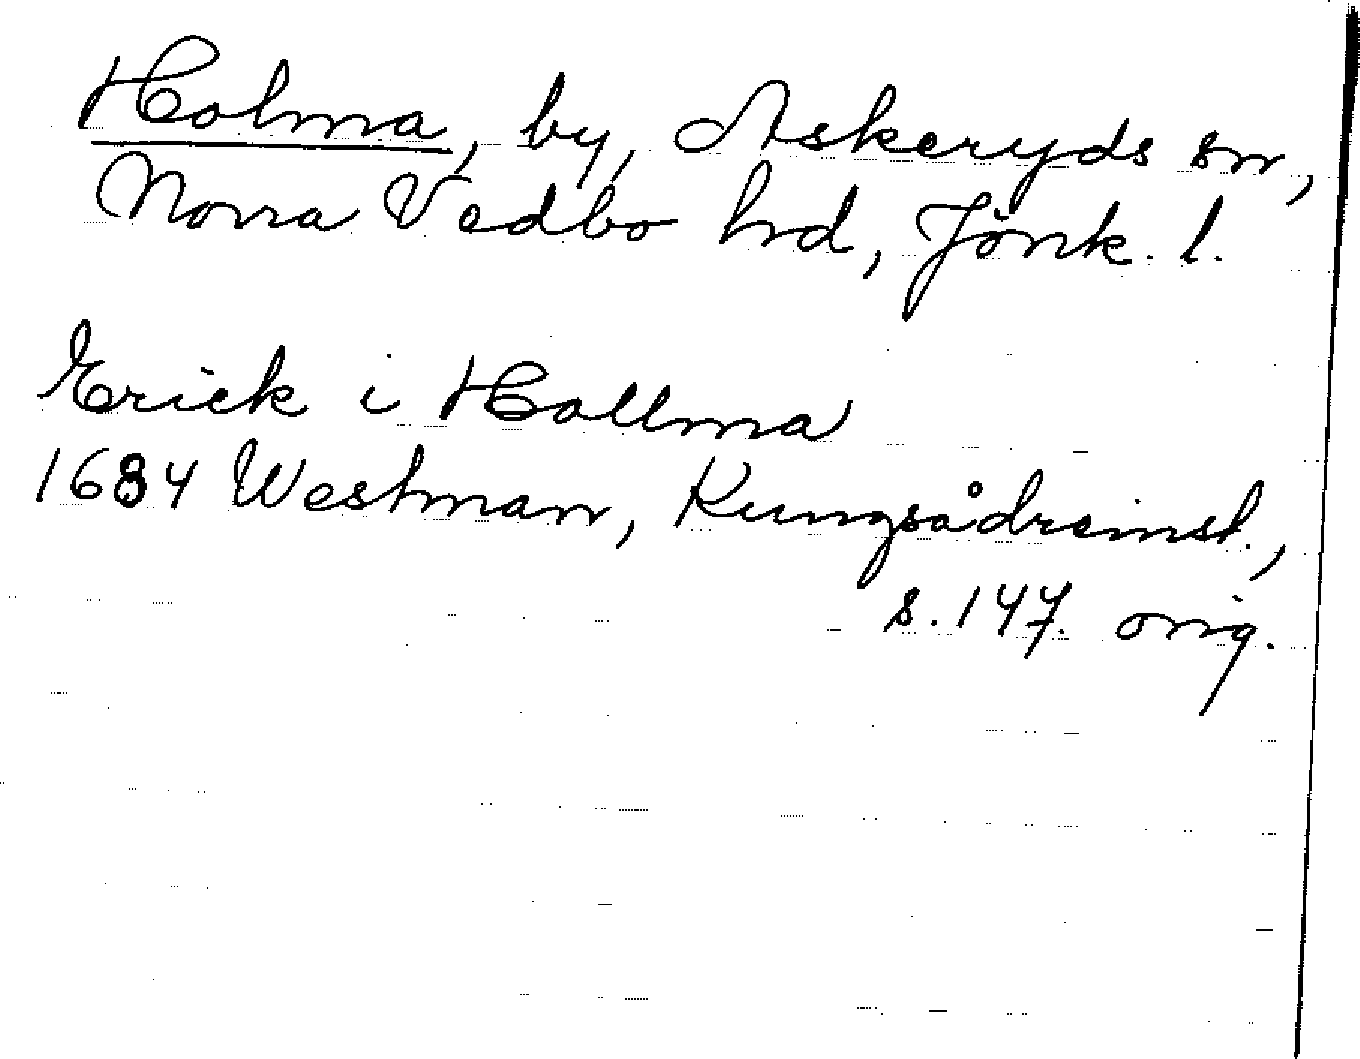 Holma, by, Askeryds sn,
Norra Vedbo hrd, Jönk. l.
Erick i Hollma
1684 Westman, Kungsådreinst.,
s. 147. orig.